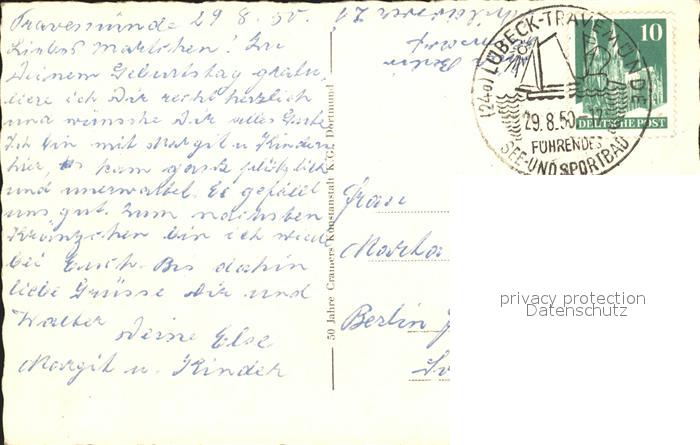 Travemünde 29.8.50.
Liebes Martchen! Zu
Deinem Geburtstag gratu-
liere ich Dir recht herzlich
und wünsche Dir alles Gute.
Ich bin mit Margit u. Kindern
hier, es kam ganz plötzlich
und unerwartet. Es gefällt
uns gut. Zum nächsten
Kränzchen bin ich wieder
bei Euch. Bis dahin
liebe Grüsse Dir und
Walter Deine Else
Margit u. Kinder
50 Jahre Cramers Kunstanstalt K.G., Dortmund
(24a) LÜBECK-TRAVEMÜNDE
29.8.50
FÜHRENDES
SEE- UND SPORTBAD
10
DEUTSCHE POST
Frau
Martha
Berlin
privacy protection
Datenschutz